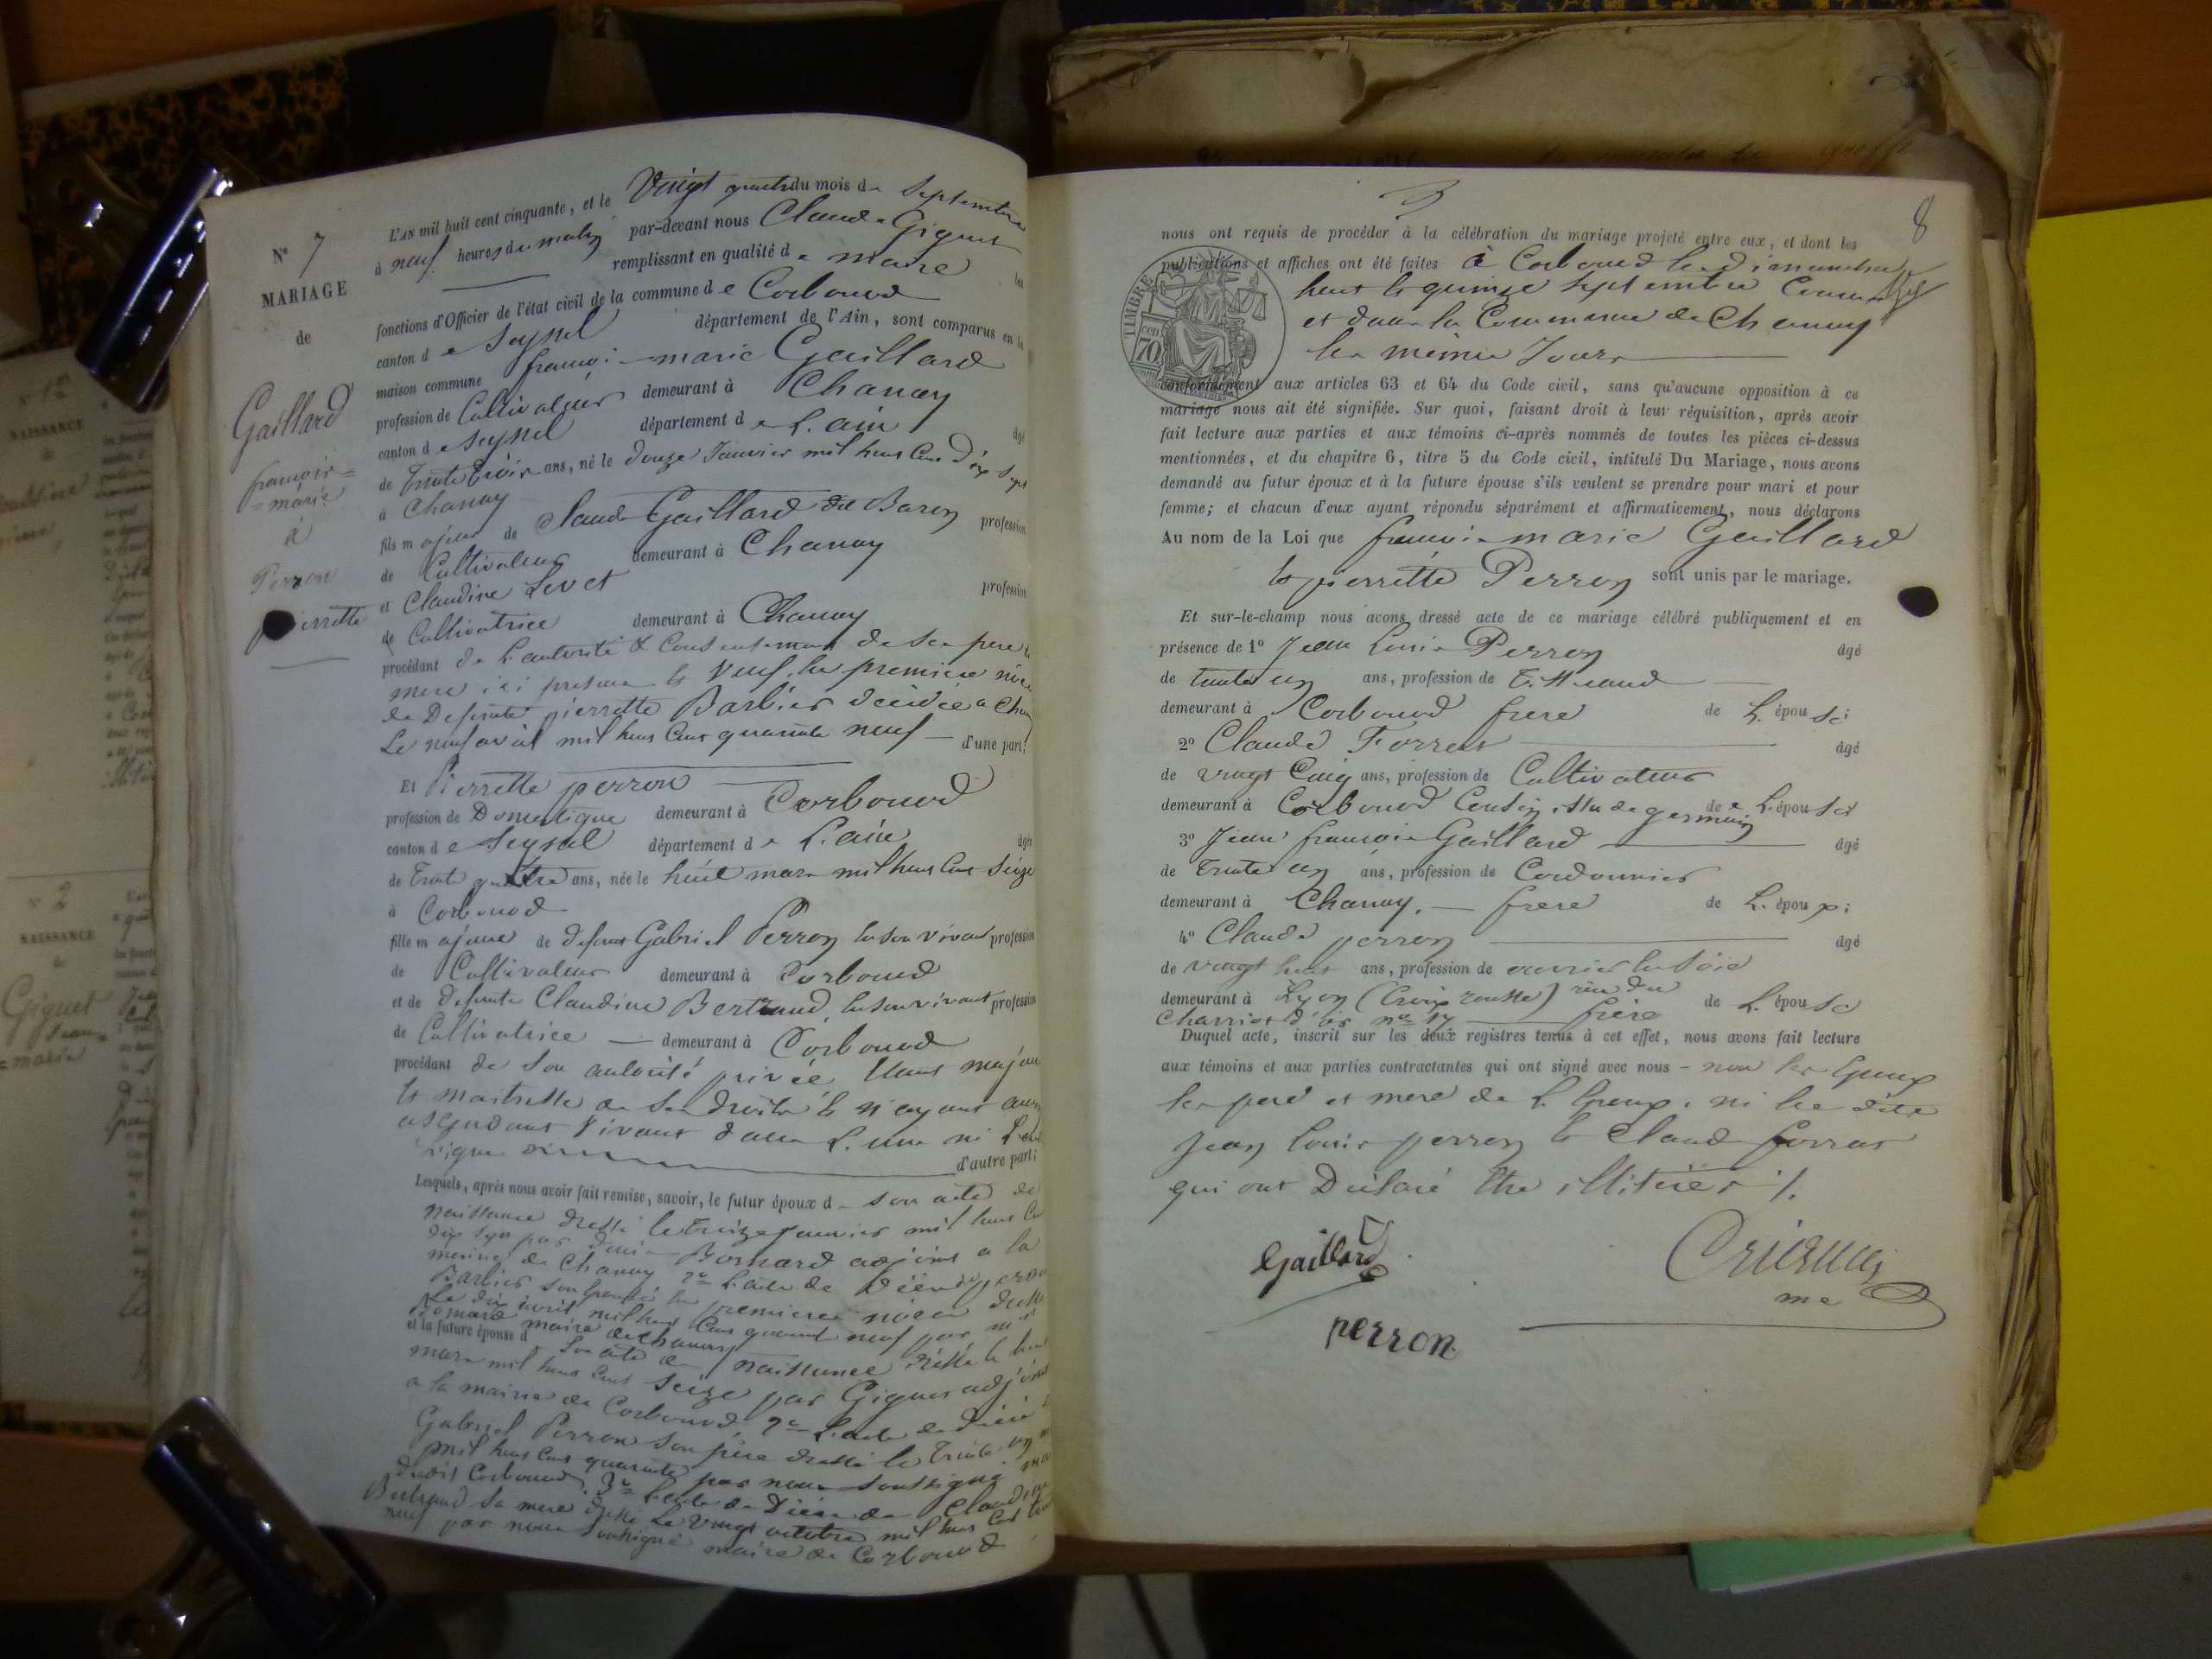 N° 7
MARIAGE
de
Gaillard
françois=
=marie
à
Perron
pierrette
L'AN mil huit cent cinquante, et le Vingt quatre du mois de Septembre
à neuf heures du matin par-devant nous Claude Giguet
remplissant en qualité de maire les
fonctions d'Officier de l'état civil de la commune de Corbonod
canton de Seyssel département de l'Ain, sont comparus en la
maison commune françois marie Gaillard
profession de Cultivateur demeurant à Chanay
canton de Seyssel département de L'ain âgé
de Trente trois ans, né le douze Janvier mil huit Cent dix sept
à Chanay
fils majeur de Claude Gaillard dit Baron profession
de Cultivateur demeurant à Chanay
et Claudine Levet profession
de Cultivatrice demeurant à Chanay
procédant de L'autorité & Consentement de ses pere &
mere ici present & Veuf en premiere noce
de Defunte pierrette Barbier décédée a Chanay
Le neuf avril mil huit Cent quarante neuf — d'une part;
Et Pierrette perron
profession de Domestique demeurant à Corbonod
canton de Seyssel département de L'ain âgée
de Trente quatre ans, née le huit mars mil huit Cent Seize
à Corbonod
fille majeure de defunt Gabriel Perron en son vivant profession
de Cultivateur demeurant à Corbonod
et de defunte Claudine Bertrand, en son vivant profession
de Cultivatrice — demeurant à Corbonod
procédant de son autorité privée étant majeure
& maitresse de ses droits & n'ayant aucun
ascendant Vivant dans L'une ni L'autre
Ligne d'autre part;
Lesquels, après nous avoir fait remise, savoir, le futur époux de son acte de
naissance dressé le treize Janvier mil huit Cent
dix sept par Bornard adjoint a la
mairie de Chanay 2° L'acte de Décès de
Barbier son épouse en premiere noces dressé
Le dix avril mil huit Cent quarante neuf par mr
Bornard maire de Chanay
et la future épouse de Son acte de naissance dressé le huit
mars mil huit Cent Seize par Giguet adjoint
a la mairie de Corbonod, 2° L'acte de décès de
Gabriel Perron son père dressé le Trente un
mil huit Cent quarante par nous soussigné maire
dudit Corbonod. 3° L'acte de Décès de Claudine
Bertrand sa mere dressé Le Vingt octobre mil huit Cent trente
neuf par nous soussigné maire de Corbonod
8
nous ont requis de procéder à la célébration du mariage projeté entre eux, et dont les
publications et affiches ont été faites à Corbonod les dimanches
huit & quinze Septembre Courant
et dans la Commune de Chanay
les même Jours
TIMBRE
70
conformément aux articles 63 et 64 du Code civil, sans qu'aucune opposition à ce
mariage nous ait été signifiée. Sur quoi, faisant droit à leur réquisition, après avoir
fait lecture aux parties et aux témoins ci-après nommés de toutes les pièces ci-dessus
mentionnées, et du chapitre 6, titre 5 du Code civil, intitulé Du Mariage, nous avons
demandé au futur époux et à la future épouse s'ils veulent se prendre pour mari et pour
femme; et chacun d'eux ayant répondu séparément et affirmativement, nous déclarons
Au nom de la Loi que françois marie Gaillard
& pierrette Perron sont unis par le mariage.
Et sur-le-champ nous avons dressé acte de ce mariage célébré publiquement et en
présence de 1° Jean Louis Perron âgé
de trente un ans, profession de Tisserand
demeurant à Corbonod frere de L'épouse;
2° Claude Forrat âgé
de vingt Cinq ans, profession de Cultivateur
demeurant à Corbonod Cousin issu de germain de L'épouse
3° Jean françois Gaillard âgé
de Trente un ans, profession de Cordonnier
demeurant à Chanay, — frere de L'époux;
4° Claude perron âgé
de vingt huit ans, profession de ouvrier en Soie
demeurant à Lyon (Croix rousse) rue du de L'épouse
Charriot d'or n° 17 frère
Duquel acte, inscrit sur les deux registres tenus à cet effet, nous avons fait lecture
aux témoins et aux parties contractantes qui ont signé avec nous - non les époux
les pere et mere de L'époux, ni les dits
Jean Louis perron & Claude forrat
qui ont Déclaré être illitérés /.
Gaillard
perron
me